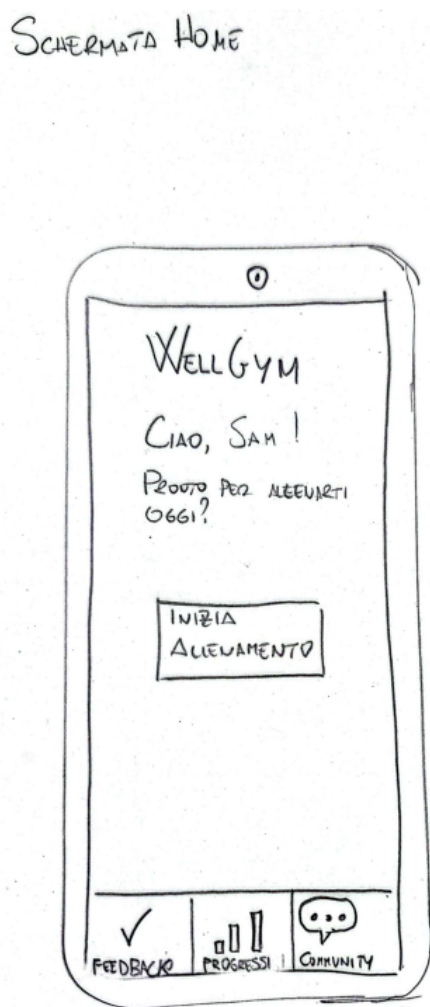 SCHERMATA HOME
WELLGYM
CIAO, SAM!
PRONTO PER ALLENARTI
OGGI?
INIZIA
ALLENAMENTO
FEEDBACK
PROGRESSI
COMMUNITY